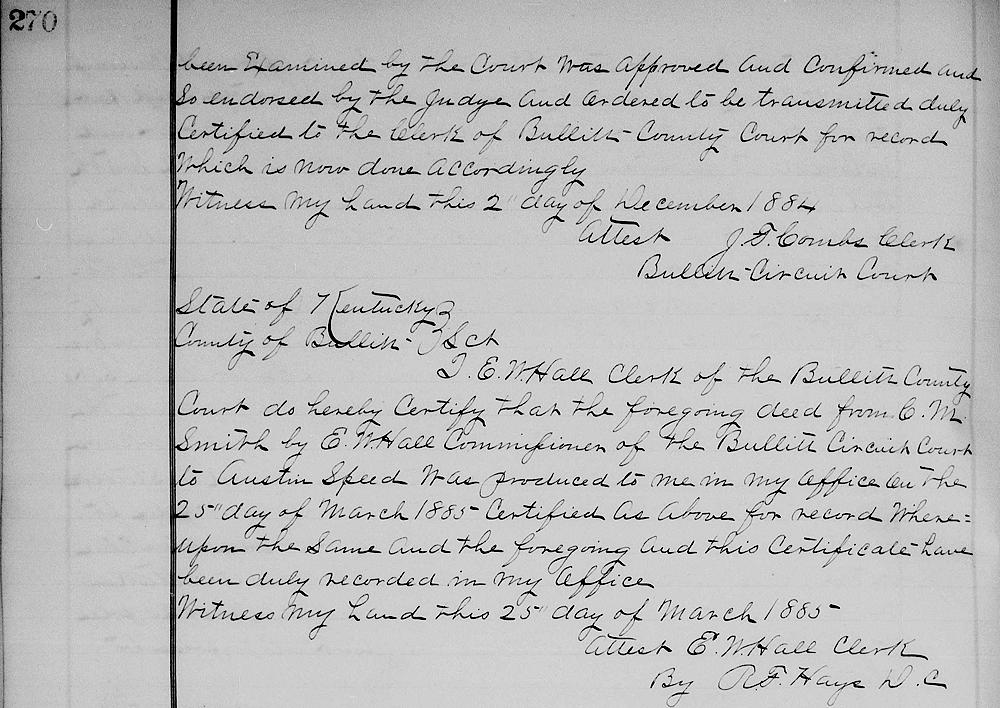 270
been Examined by the Court was Approved and Confirmed and
So endorsed by the Judge and Ordered to be transmitted duly
Certified to the Clerk of Bullitt County Court for record
Which is now done Accordingly
Witness My hand this 2" day of December 1884
Attest J. F. Combs Clerk
Bullitt Circuit Court
State of Kentucky }
County of Bullitt } Sct
I. E. W. Hall Clerk of the Bullitt County
Court do hereby Certify that the foregoing deed from C. M.
Smith by E. W. Hall Commissioner of the Bullitt Circuit Court
to Austin Speed Was produced to me in my office on the
25" day of March 1885 Certified As Above for record Where=
upon the Same And the foregoing And this Certificate have
been duly recorded in my Office
Witness My hand this 25" day of March 1885
Attest E. W. Hall Clerk
By R. F. Hays D. C